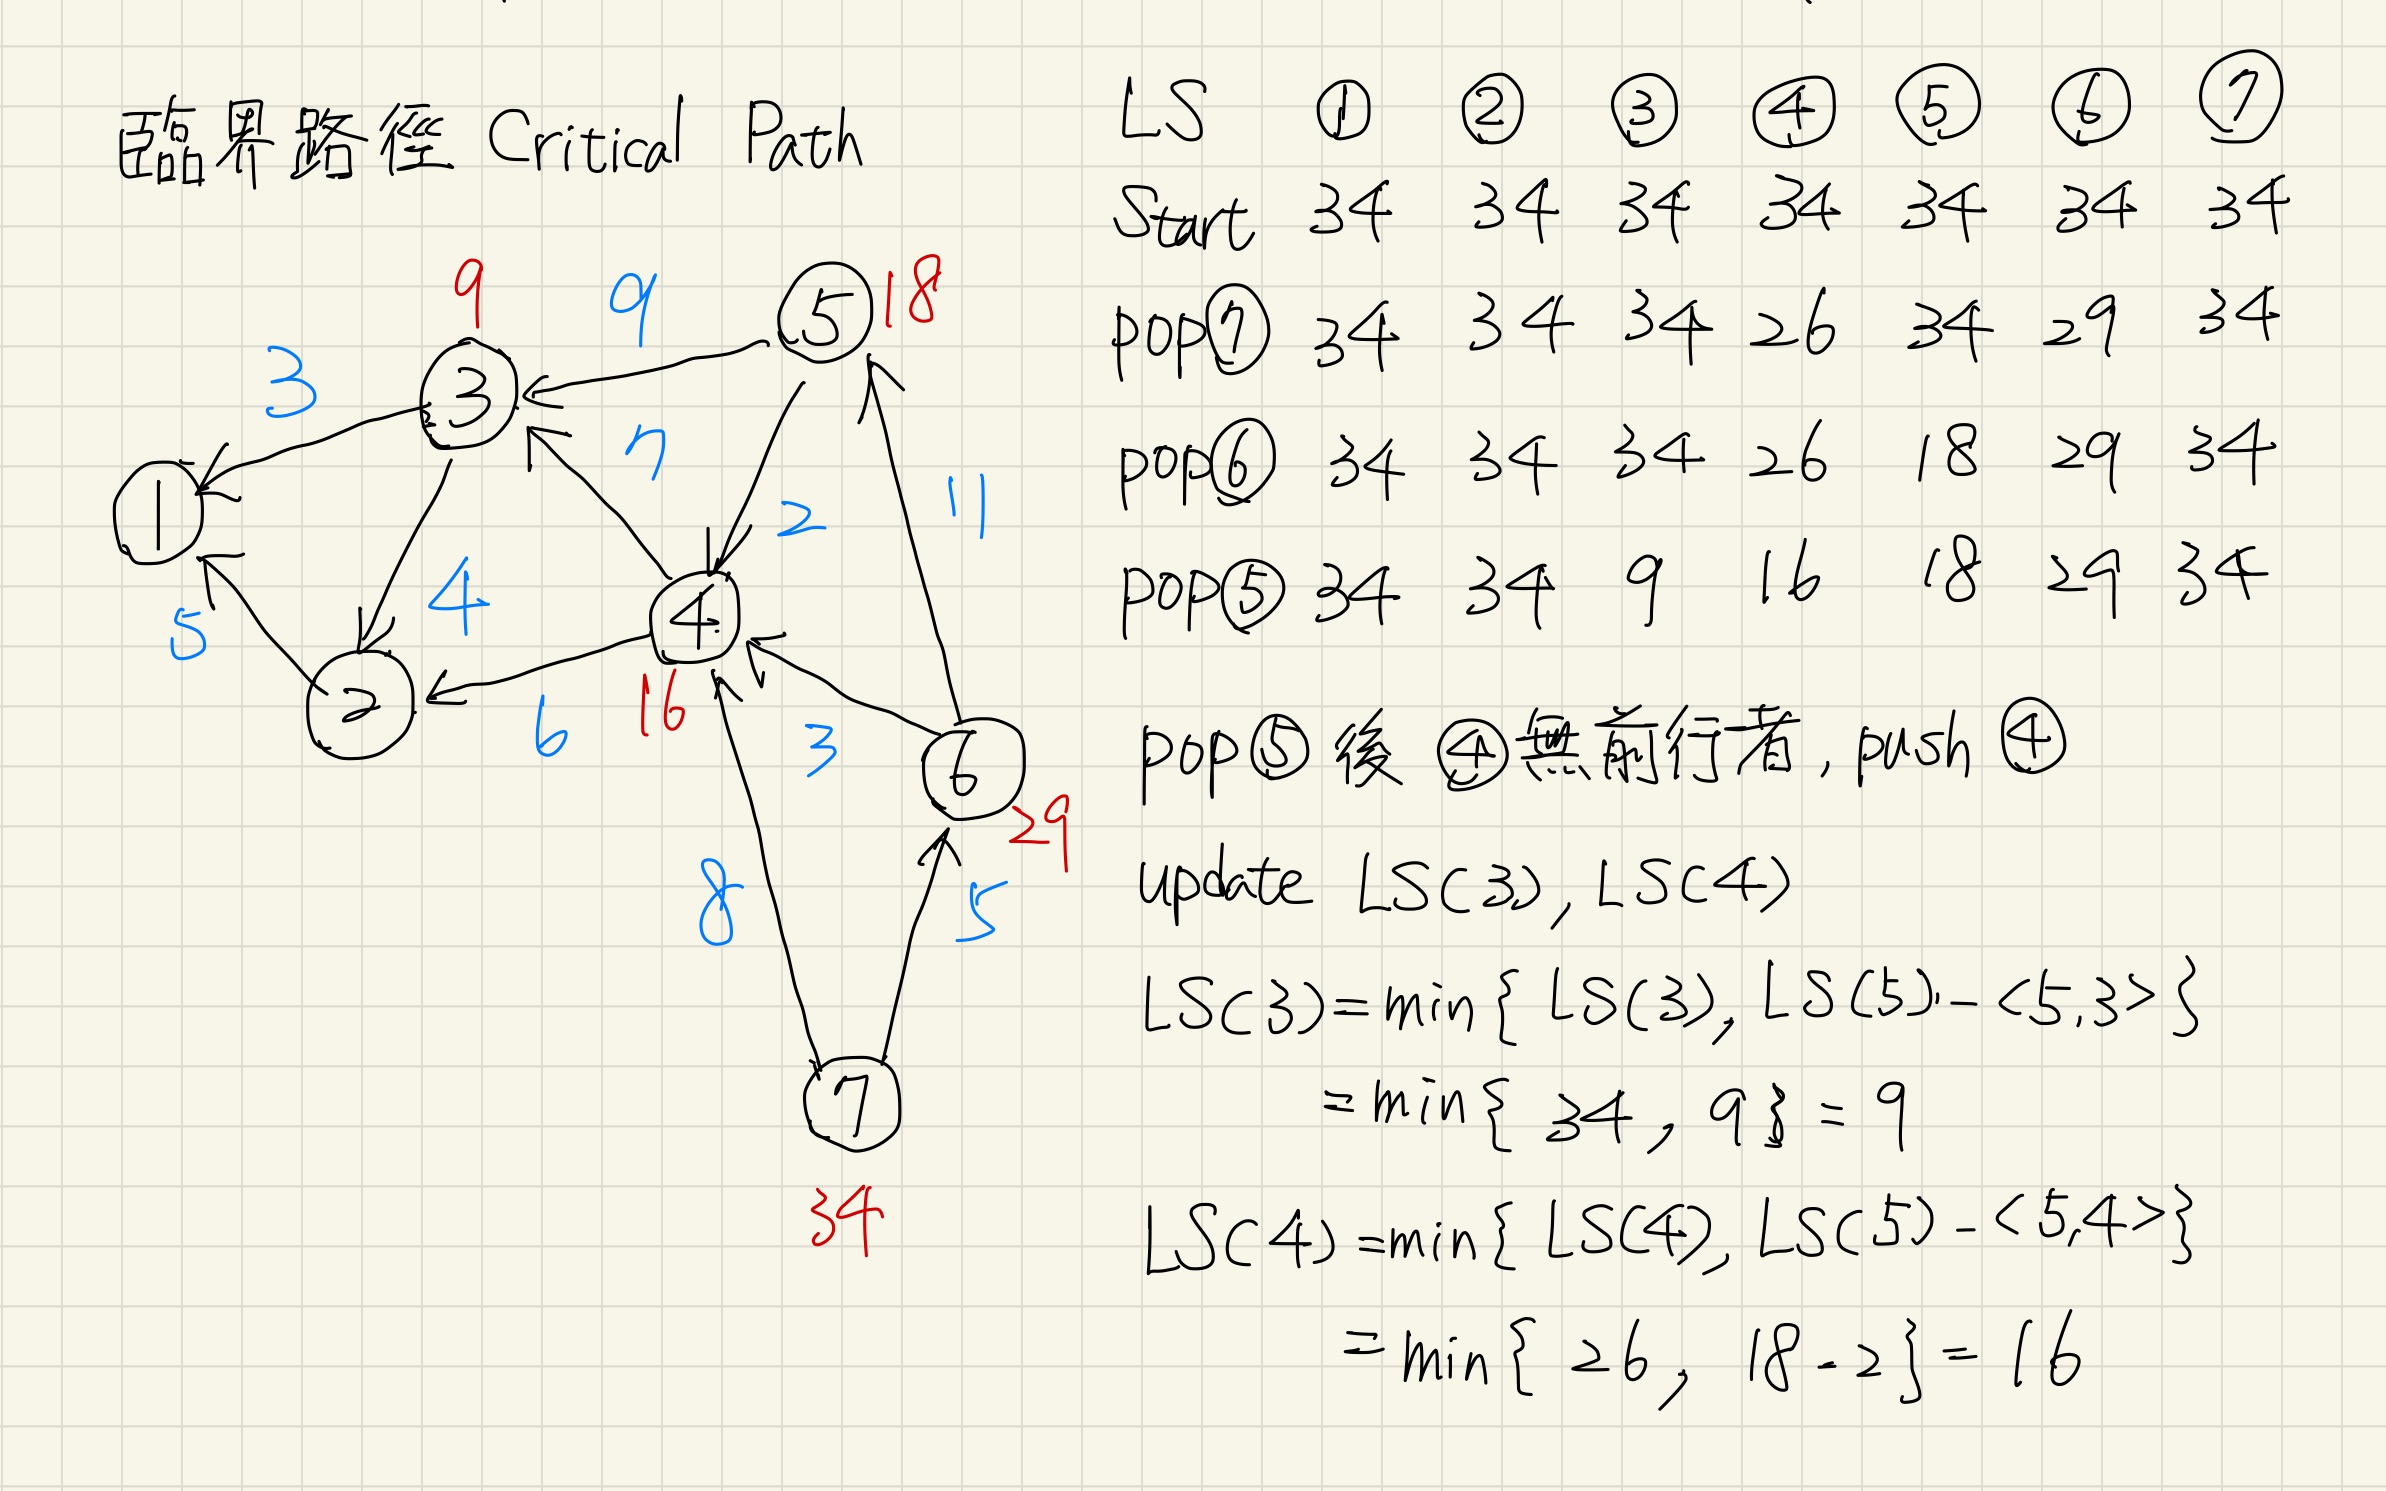 臨界路徑 Critical Path
9
9
5
18
3
3
7
1
2
11
4
5
4
2
6
16
3
6
29
8
5
7
34
LS ① ② ③ ④ ⑤ ⑥ ⑦
Start 34 34 34 34 34 34 34
pop⑦ 34 34 34 26 34 29 34
pop⑥ 34 34 34 26 18 29 34
pop⑤ 34 34 9 16 18 29 34
pop⑤後 ④無前行者, push ④
update LS(3), LS(4)
LS(3)=min{ LS(3), LS(5)-<5,3> }
=min{ 34, 9} = 9
LS(4)=min{ LS(4), LS(5)-<5,4>}
=min{ 26, 18-2} = 16